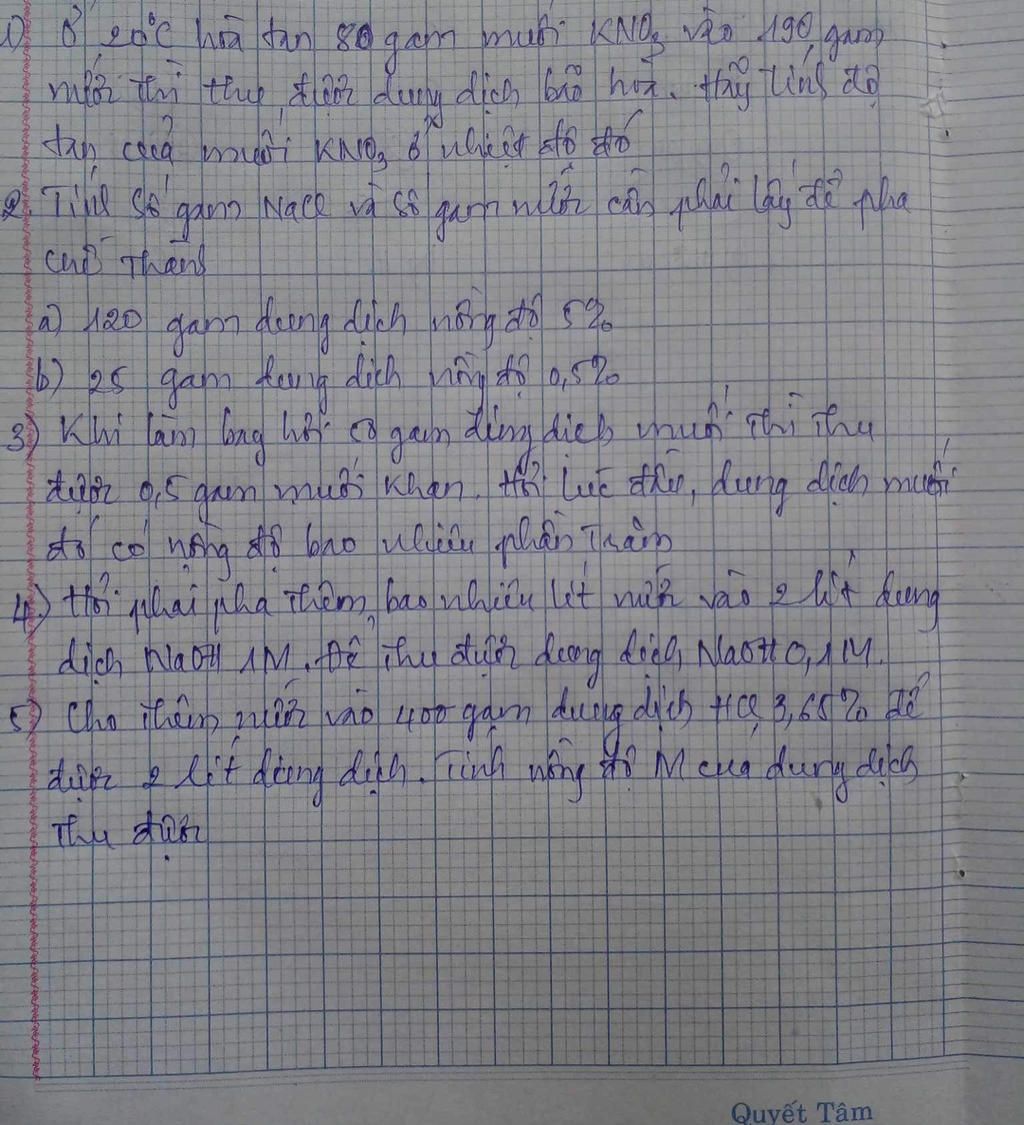 1) Ở 20°C hòa tan 80 gam muối KNO3 vào 190 gam
nước thì thu được dung dịch bão hoà. Hãy tính độ
tan của muối KNO3 ở nhiệt độ đó
2. Tính số gam NaCl và số gam nước cần phải lấy để pha
chế thành
a) 120 gam dung dịch nồng độ 5%
b) 25 gam dung dịch nồng độ 0,5%
3) Khi làm bay hơi gam dung dịch muối thì thu
được 0,5 gam muối khan. Hỏi lúc đầu, dung dịch muối
đó có nồng độ bao nhiêu phần trăm
4) Hỏi phải pha thêm bao nhiêu lít nước vào 2 lít dung
dịch NaOH 1M. Để thu được dung dịch NaOH 0,1M.
5) Cho thêm nước vào 400 gam dung dịch HCl 3,65% để
được 2 lít dung dịch. Tính nồng độ M của dung dịch
thu được
Quyết Tâm